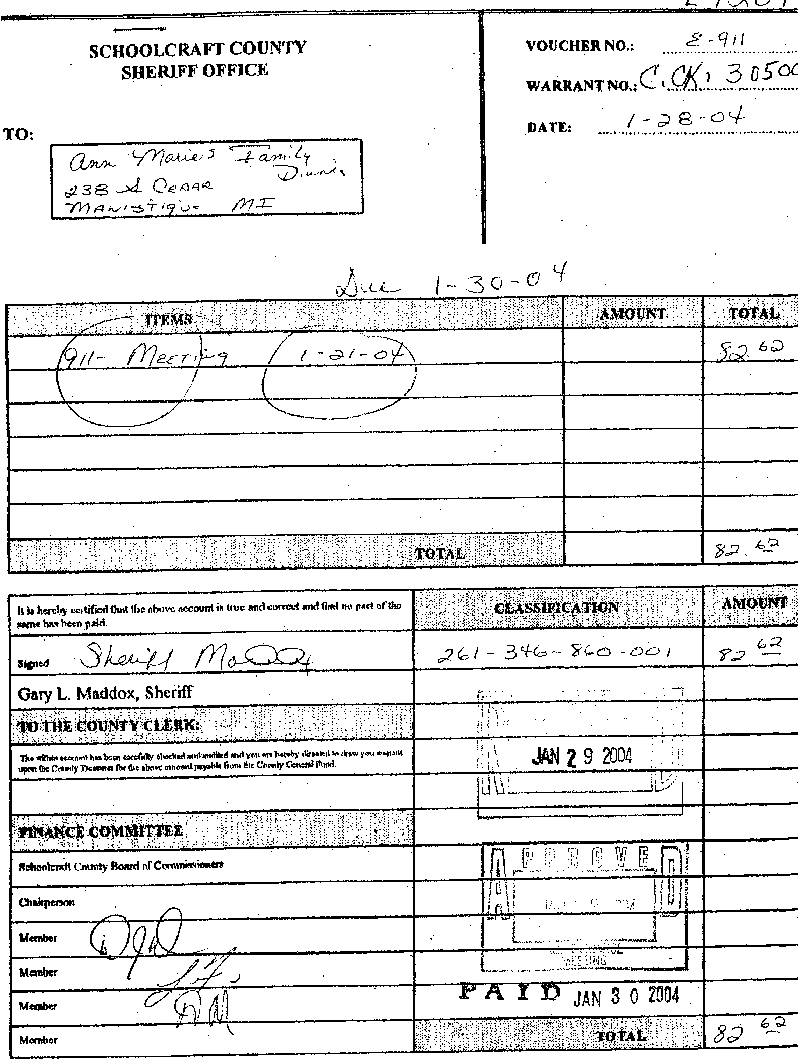 SCHOOLCRAFT COUNTY
SHERIFF OFFICE
VOUCHER NO.: E-911
WARRANT NO.: C.CK. 30500
DATE: 1-28-04
TO:
Ann Marie's Family
Diner
238 S CEDAR
MANISTIQUE MI
Due 1-30-04
ITEMS AMOUNT TOTAL
911- Meeting 1-21-04 82 62
TOTAL 82 62
It is hereby certified that the above account is true and correct and that no part of the
same has been paid.
CLASSIFICATION AMOUNT
Signed Sheriff Maddox 261-346-860-001 82 62
Gary L. Maddox, Sheriff
TO THE COUNTY CLERK:
The within account has been carefully checked and audited and you are hereby directed to draw your warrant
upon the County Treasurer for the above amount payable from the County General Fund.
JAN 29 2004
FINANCE COMMITTEE
Schoolcraft County Board of Commissioners
APPROVED
Chairperson
Member
Member
MEETING
Member
PAID JAN 30 2004
Member
TOTAL 82 62